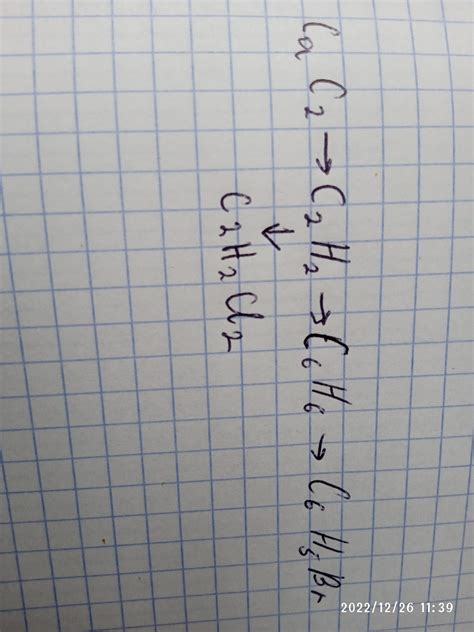 CaC₂ → C₂H₂ → C₆H₆ → C₆H₅Br
↓
C₂H₂Cl₂
2022/12/26 11:39